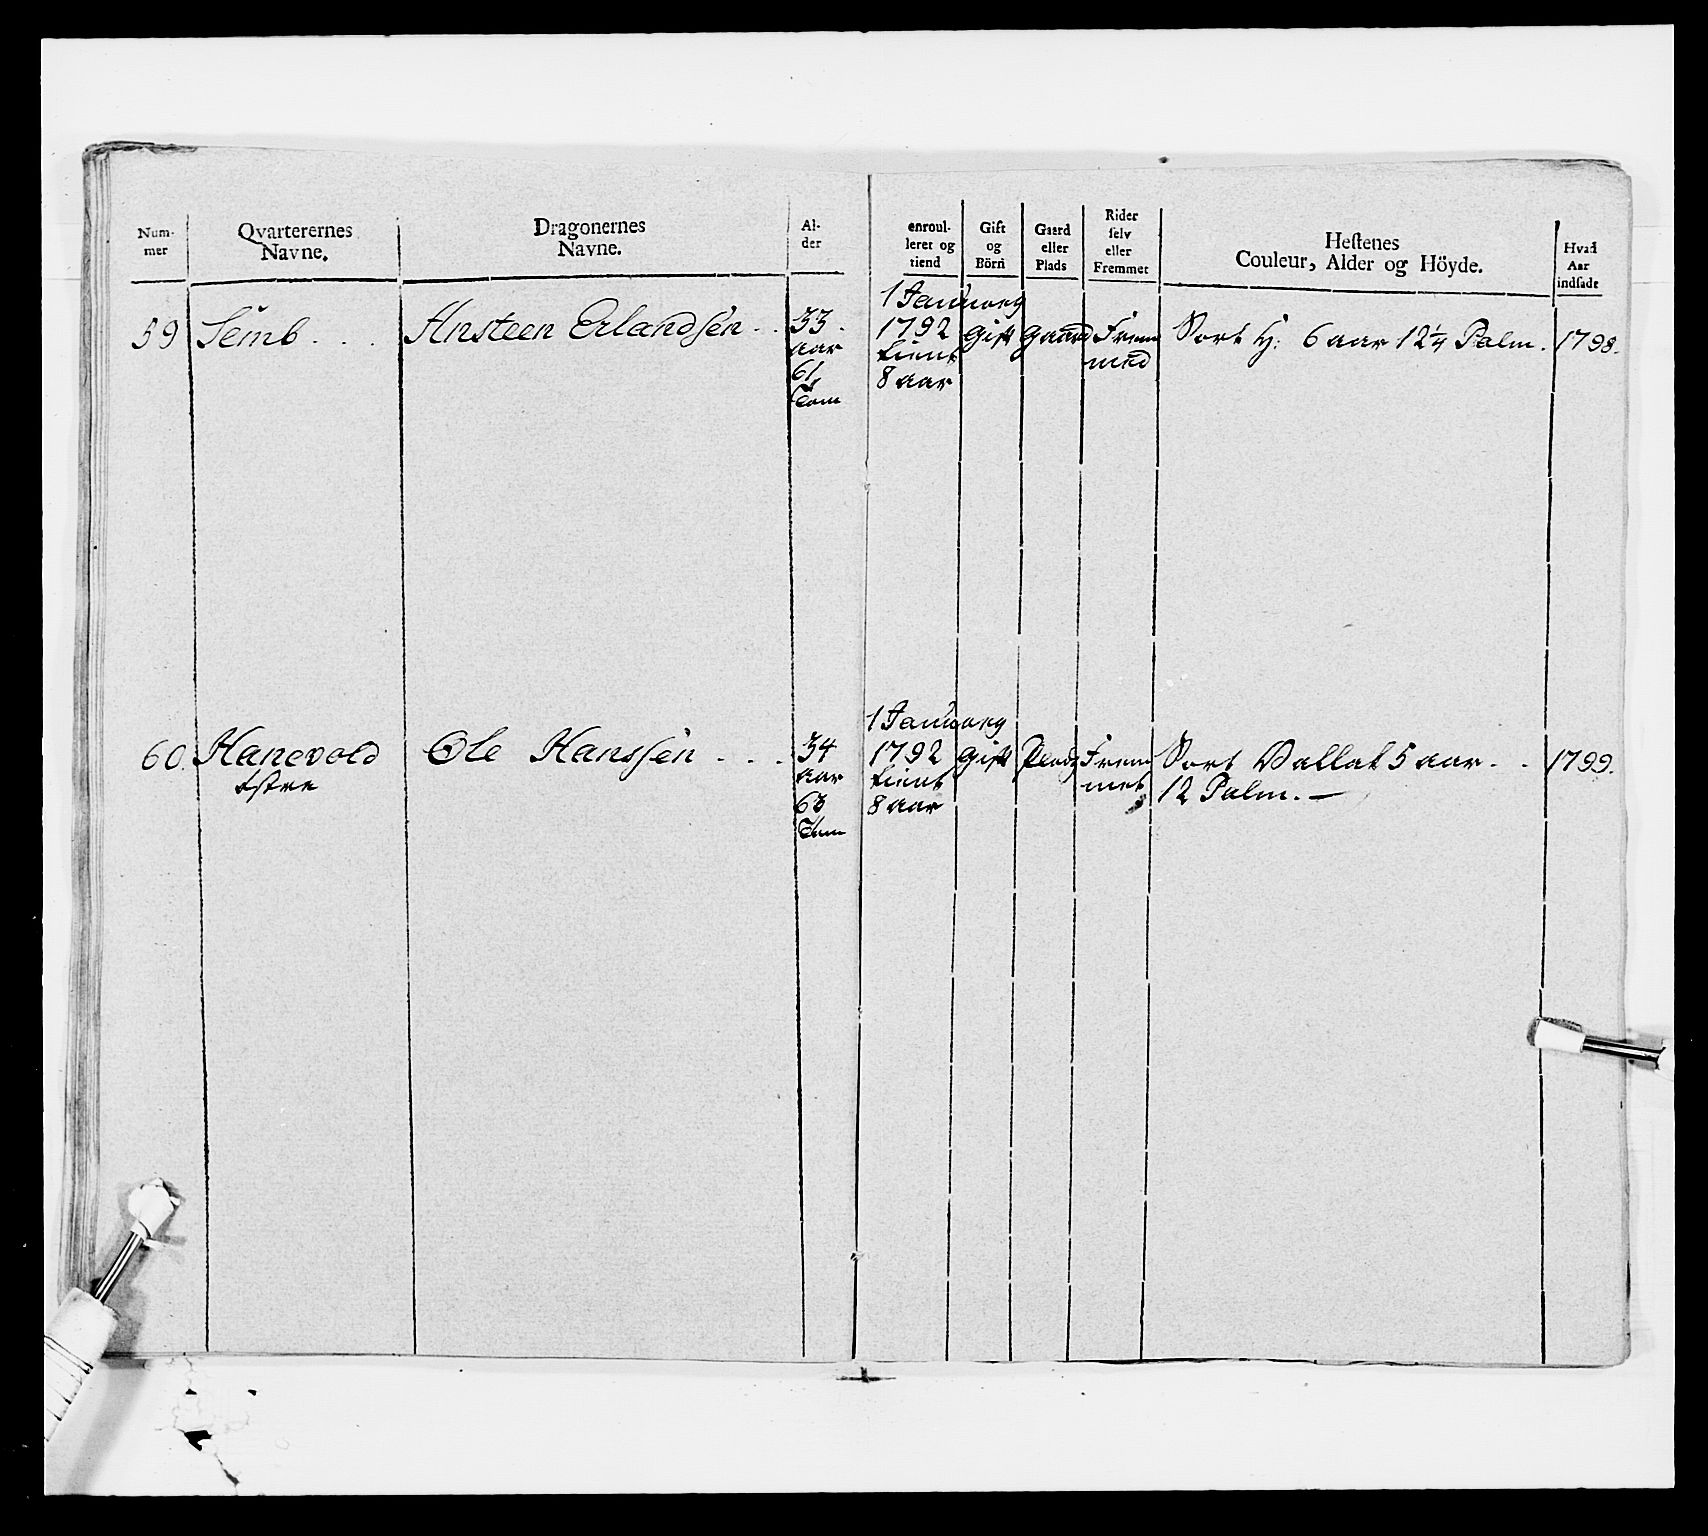 Num-
mer
Qvarterernes
Navne.
Dragonernes
Navne.
Al-
der
enroul-
leret og
tiend
Gift
og
Börn
Gaard
eller
Plads
Rider
selv
eller
Fremmet
Hestenes
Couleur, Alder og Höyde.
Hvad
Aar
indsadt
59 Semb . . . Ansteen Erlandsen . . 33 aar 61 Tom
1 Januarÿ 1792 tient 8 aar
Gift
Gaard
Frem
med
Sort H: 6 aar 12¼ Palm. 1798.
60. Hanevold
östre
Ole Hanssen . . . 34 aar 63 Tom
1 Januarÿ 1792 tient 8 aar
Gift
Plads
Frem
met
Sort Vallak 5 aar . . 1799.
12 Palm. —